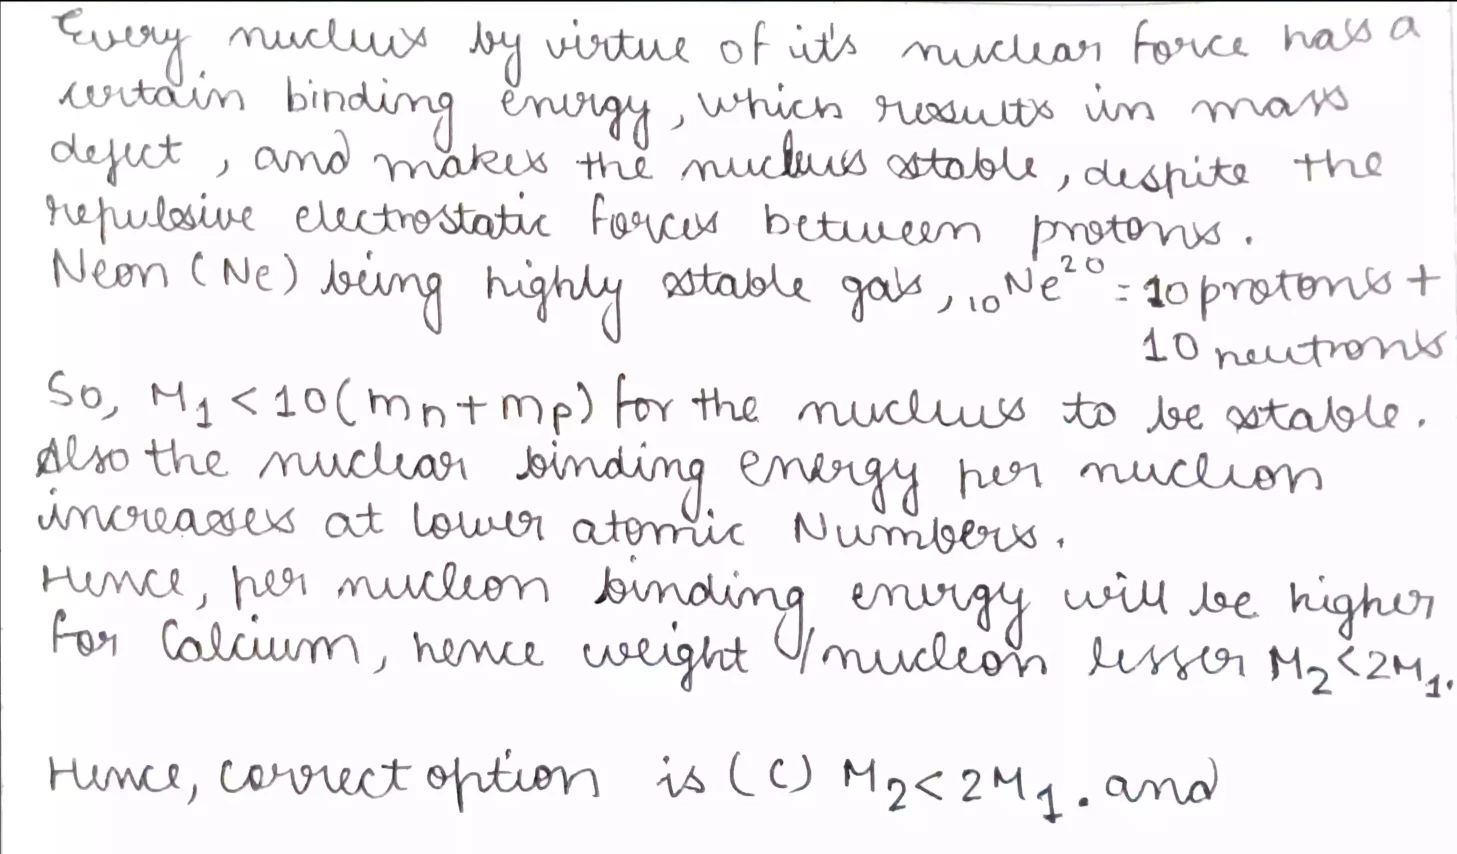 Every nucleus by virtue of it's nuclear force has a
certain binding energy, which results in mass
defect, and makes the nucleus stable, despite the
repulsive electrostatic forces between protons.
Neon (Ne) being highly stable gas, ₁₀Ne²⁰ = 10 protons +
10 neutrons
So, M₁ < 10(mn + mp) for the nucleus to be stable.
Also the nuclear binding energy per nucleon
increases at lower atomic Numbers.
Hence, per nucleon binding energy will be higher
for Calcium, hence weight/nucleon lesser M₂<2M₁.
Hence, correct option is (C) M₂< 2M₁. and